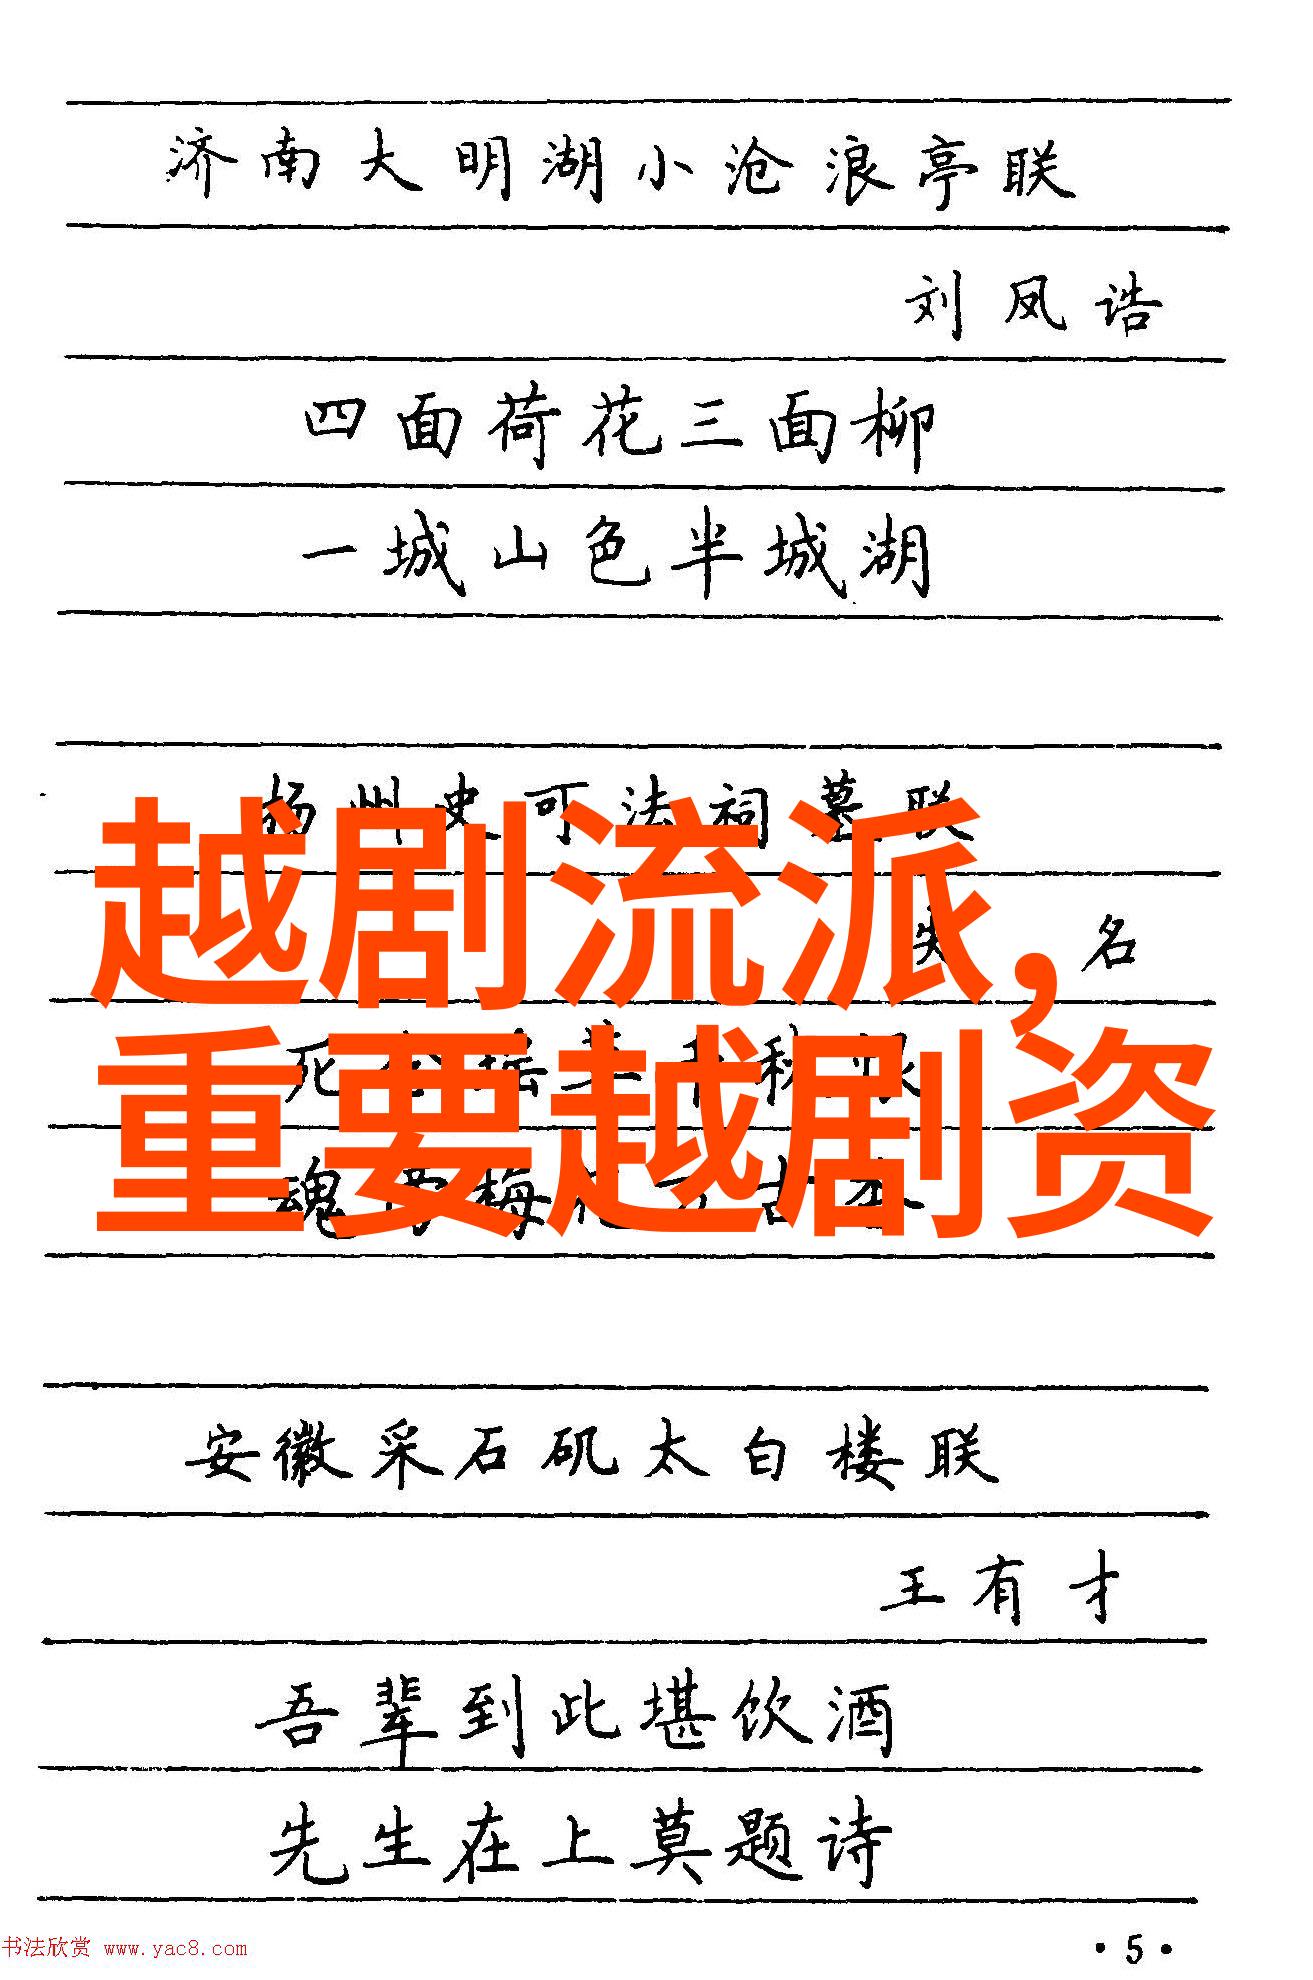 济南大明湖小沧浪亭联
刘凤诰
四面荷花三面柳
一城山色半城湖
扬州史可法祠墓联
越剧流派,
名
重要越剧资
安徽采石矶太白楼联
王有才
吾辈到此堪饮酒
先生在上莫题诗
书法欣赏 www.yac8.com
·5·